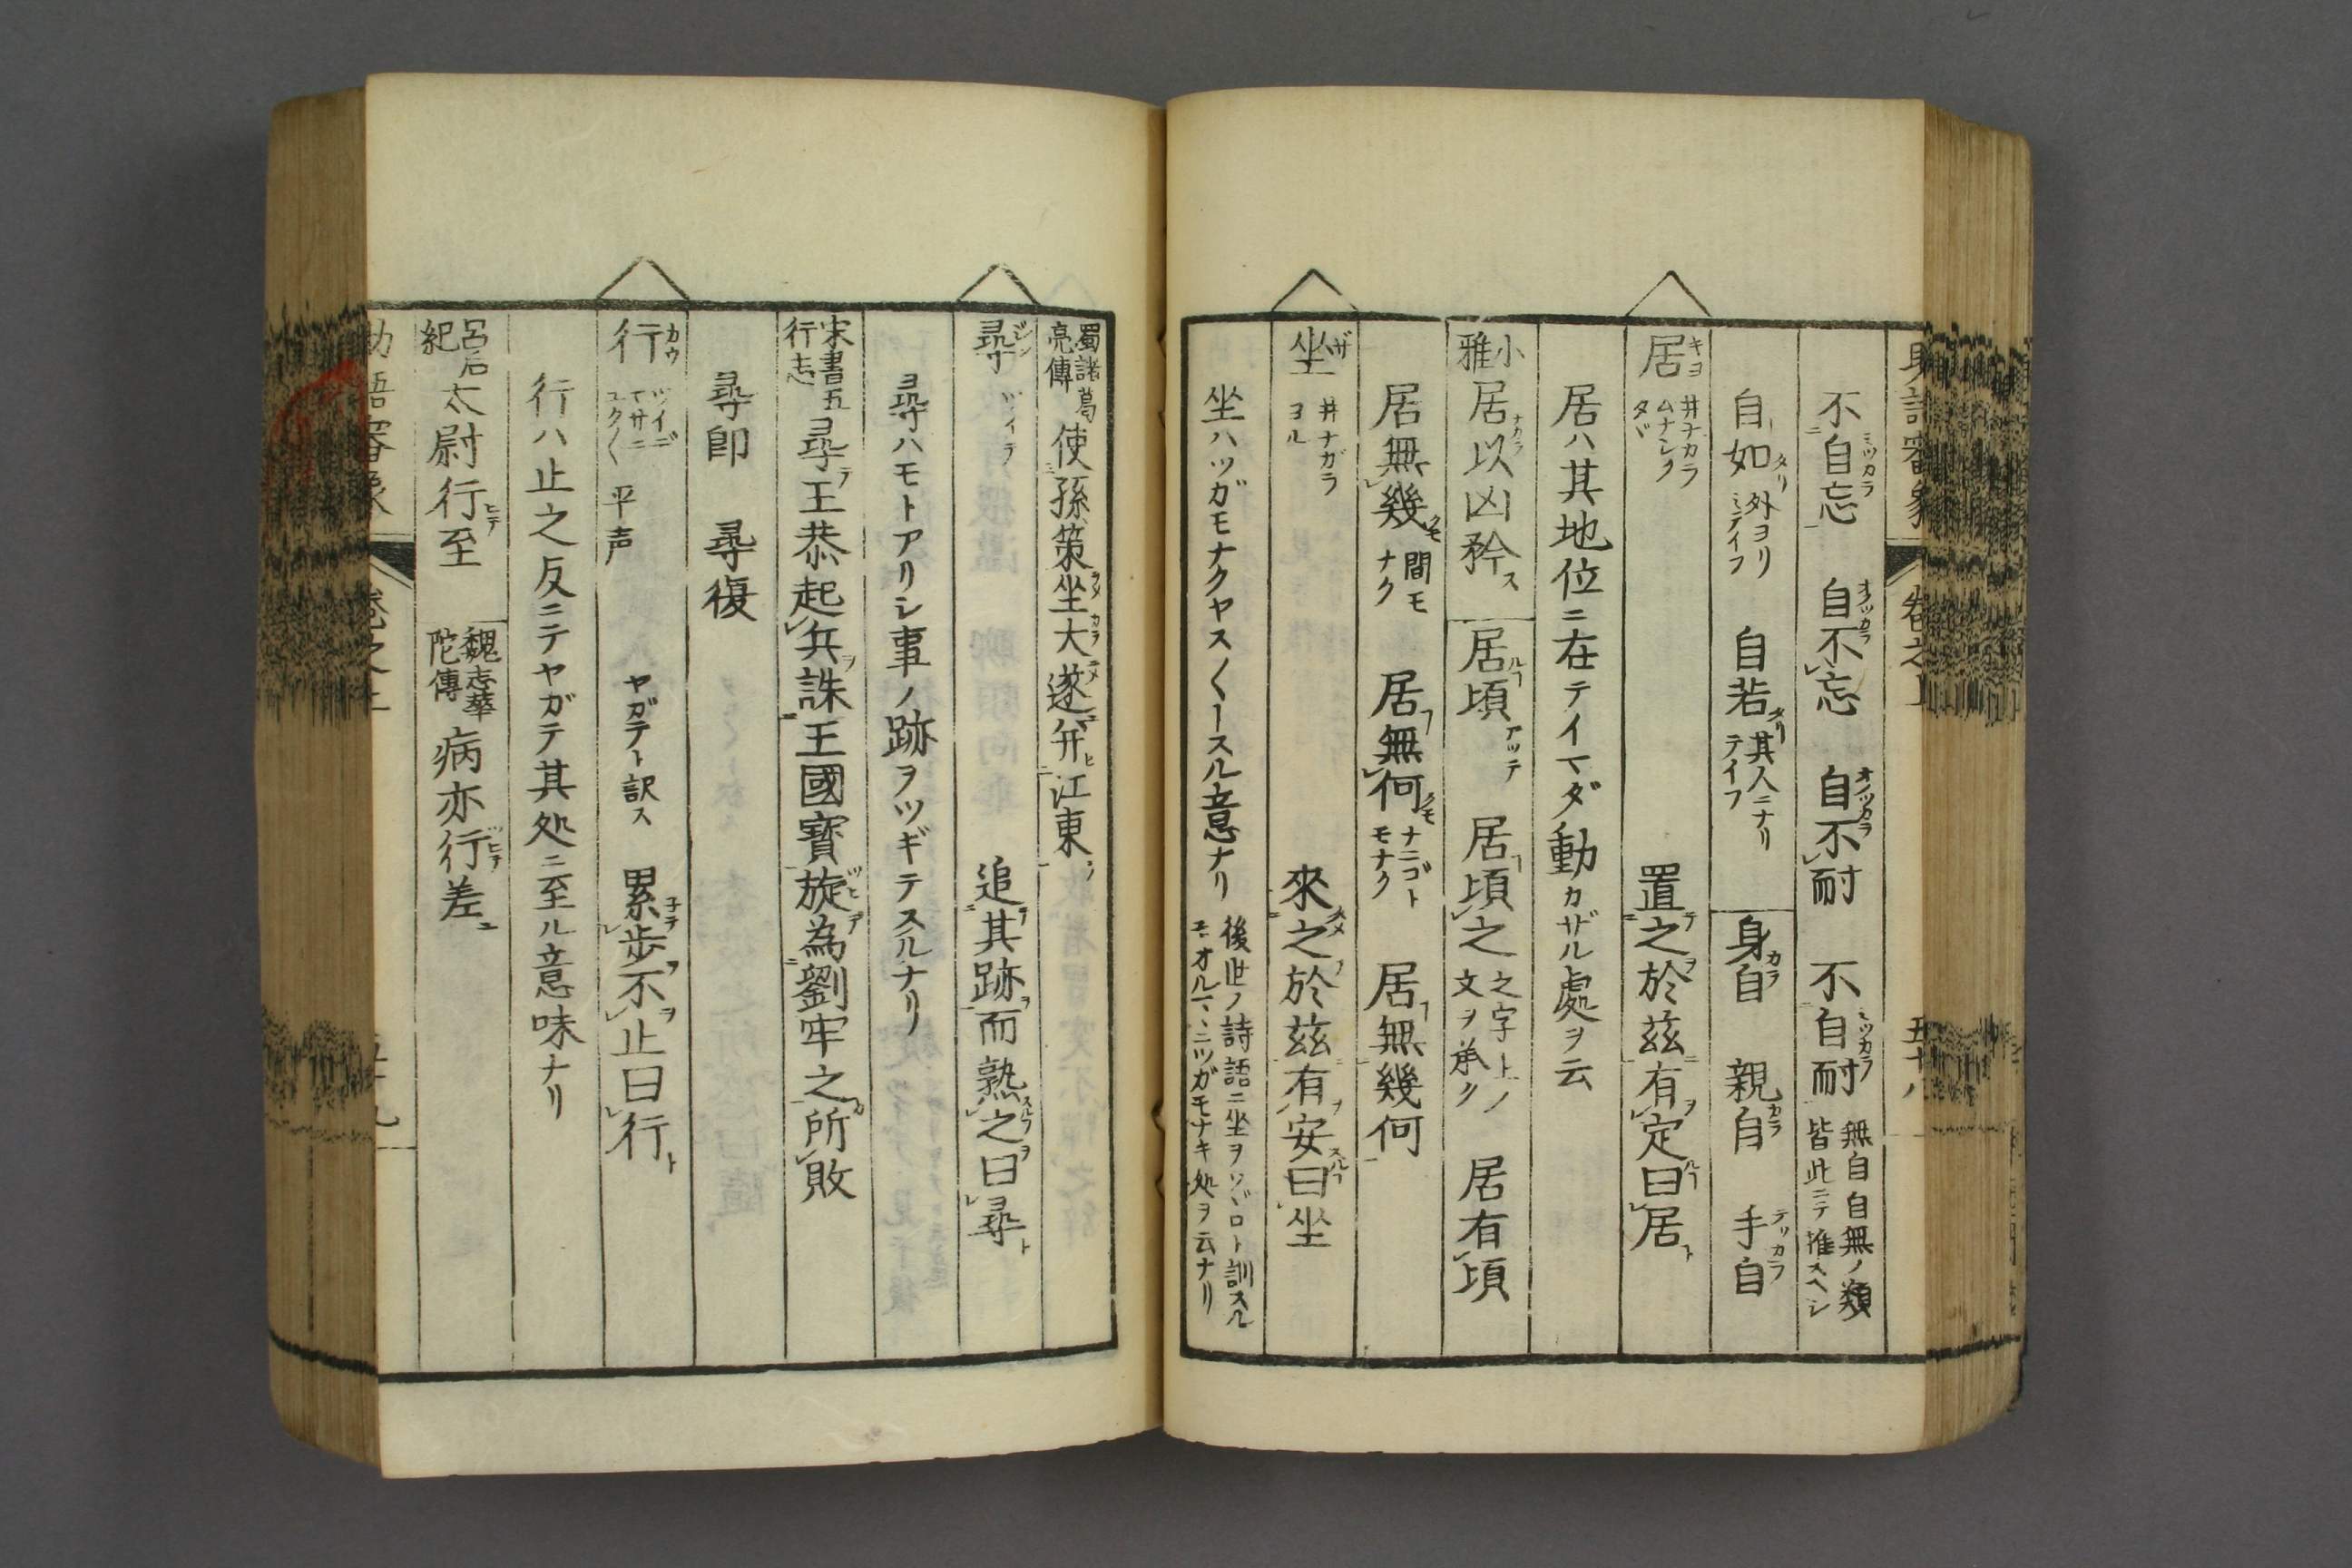 助語審象 卷之上 五十八
不自忘 自不忘 自不耐 不自耐 無自自無ノ類皆此ニテ推スヘシ
自如 外ヨリミテイフ 自若 其人ニナリテイフ 身自 親自 手自
居 キヨ 井ナカラ ムナシク タヾ 置之於茲有定曰居
居ハ其地位ニ在テイマダ動カザル處ヲ云
小雅 居以凶矜 居頃アツテ 居頃之 之字上ノ文ヲ承ク 居有頃
居無幾 間モナク 居無何 ナニゴトモナク 居無幾何
坐 ザ 井ナガラ ヨル 來之於茲有安曰坐
坐ハツガモナクヤス〱ースル意ナリ 後世ノ詩語ニ坐ヲソヾロト訓スルモ
蜀諸葛亮傳 使孫策坐大遂并江東
尋 ジン ツイテ 追其跡而熟之曰尋
尋ハモトアリシ事ノ跡ヲツギテスルナリ
宋書五行志 尋王恭起兵誅王國寶旋為劉牢之所敗
尋即 尋復
行 カウ ツイデ マサニ ユク〱 平声 ヤガテト訳ス 累歩不止曰行
行ハ止之反ニテヤガテ其処ニ至ル意味ナリ
呂后紀 太尉行至 魏志華陀傳 病亦行差
助語審象 卷之上 五十九